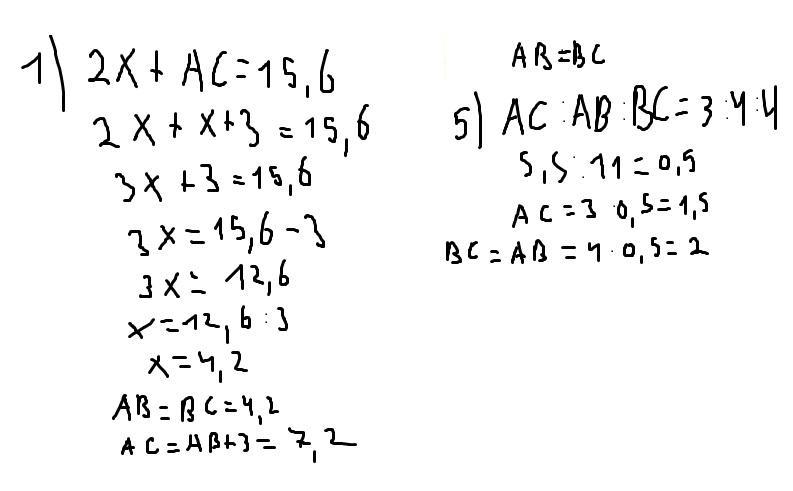 1) 2x + AC = 15,6
2x + x + 3 = 15,6
3x + 3 = 15,6
3x = 15,6 - 3
3x = 12,6
x = 12,6 : 3
x = 4,2
AB = BC = 4,2
AC = AB + 3 = 7,2
AB = BC
5) AC : AB : BC = 3 : 4 : 4
5,5 : 11 = 0,5
AC = 3 · 0,5 = 1,5
BC = AB = 4 · 0,5 = 2